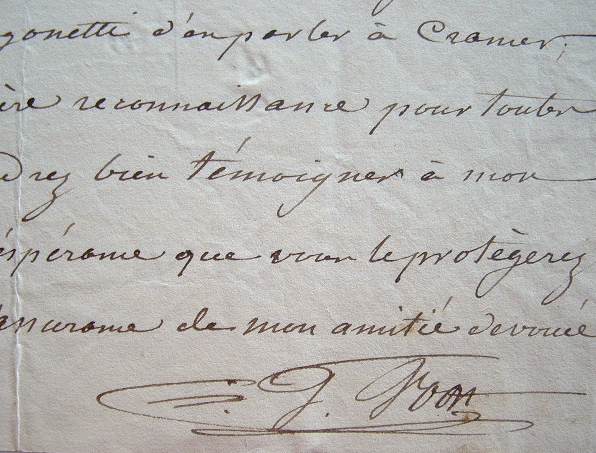 gonetti d'en parler à Cramer,
ère reconnaissance pour toutes
drez bien témoigner à mon
espérance que vous le protègerez
assurance de mon amitié devouée